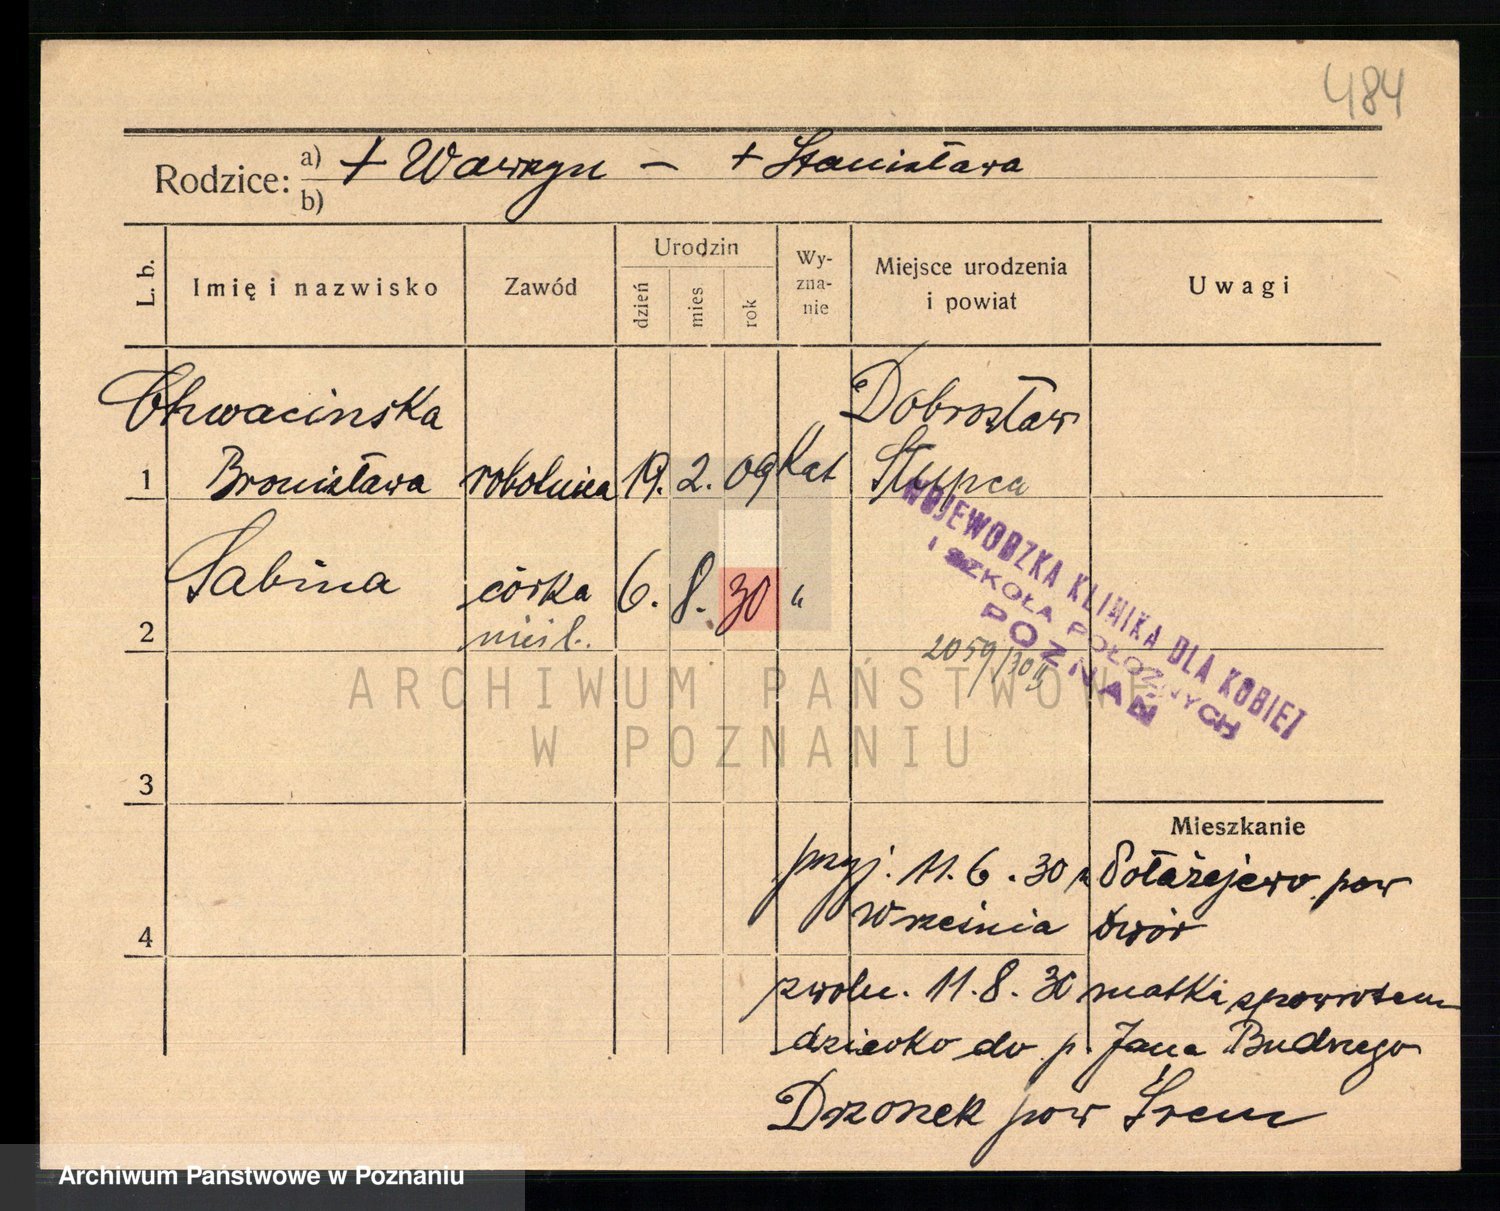 484
Rodzice: a) + Wawrzyn — + Stanisława
b)
L. b. Imię i nazwisko Zawód Urodzin dzień mies rok Wy-zna-nie Miejsce urodzenia i powiat Uwagi
Chwacinska Dobrosław
1 Bronisława robotnica 19. 2. 09 Kat Słupca
WOJEWODZKA KLINIKA DLA KOBIET
I SZKOŁA POŁOŻNYCH
POZNAŃ
Sabina córka 6. 8. 30 "
2 nieśl. 2059/30
ARCHIWUM PAŃSTWOWE
W POZNANIU
3
Mieszkanie
przyj. 11. 6. 30 z Sołażejewo pow
4 Września dwór
zwoln. 11. 8. 30 matka spowrotem
dziecko do p. Jana Budnego
Drzonek pow Śrem
Archiwum Państwowe w Poznaniu